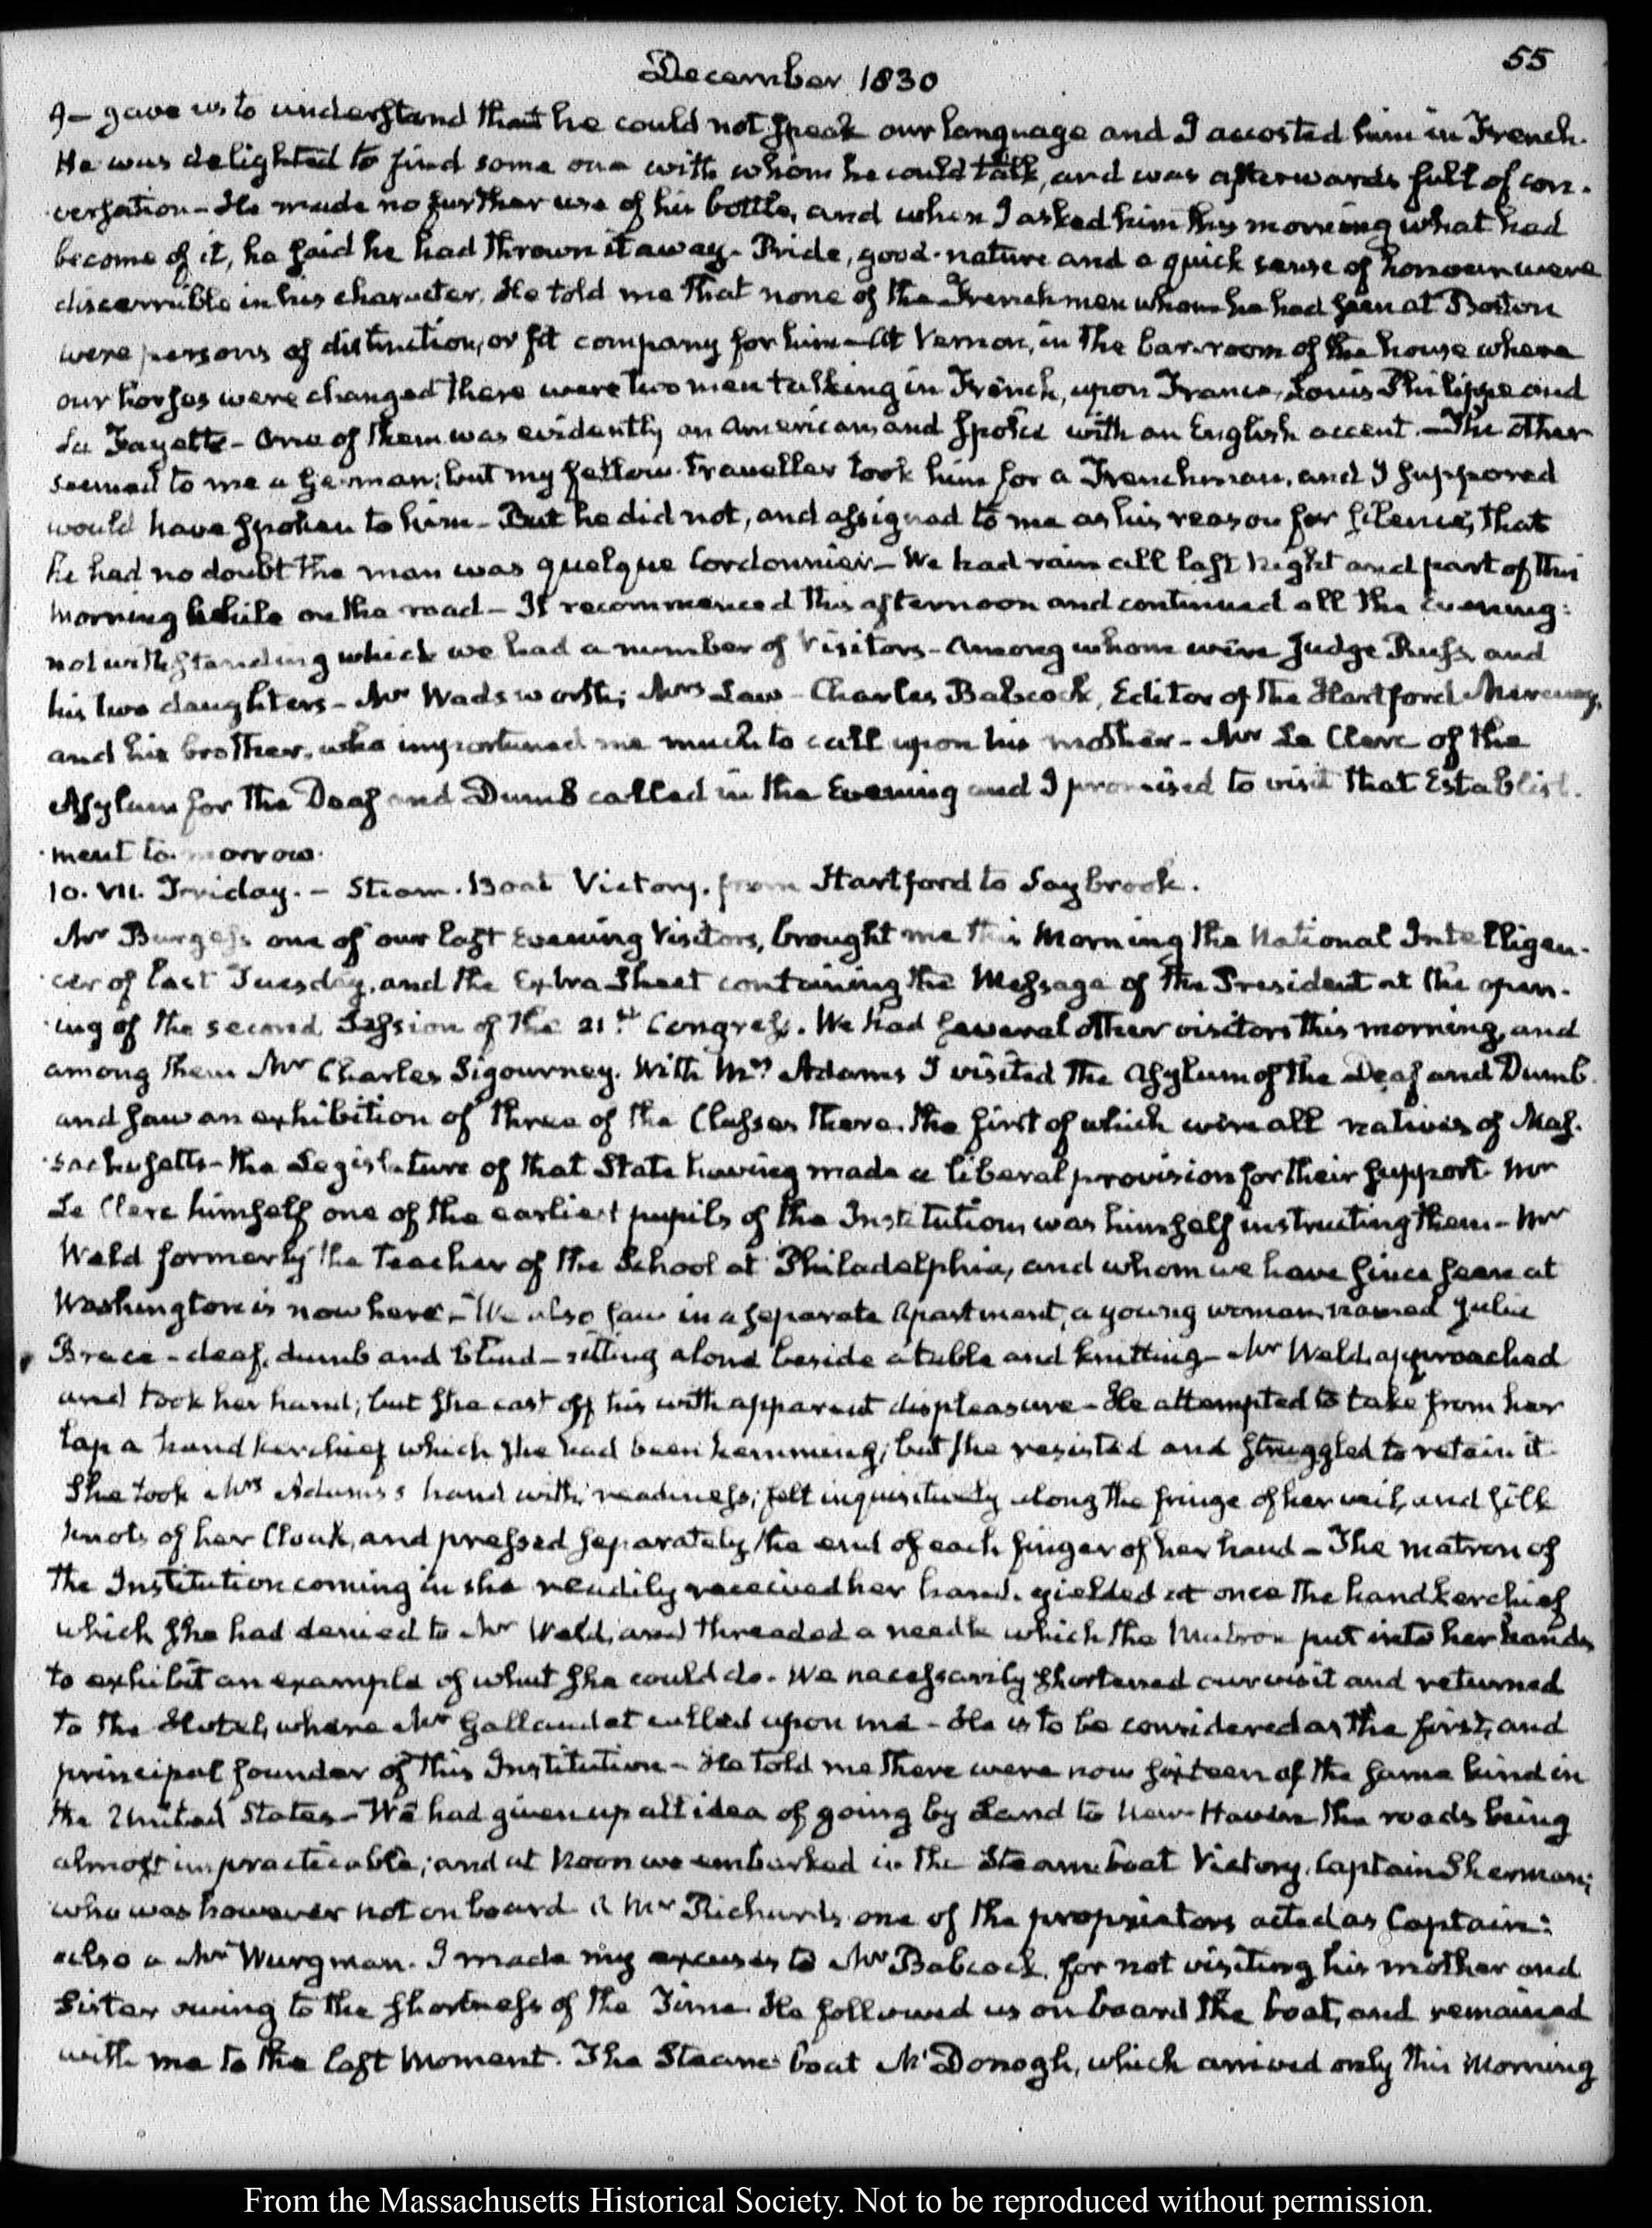 December 1830
55
9— gave us to understand that he could not speak our language and I accosted him in French.
He was delighted to find some one with whom he could talk, and was afterwards full of con-
versation— He made no further use of his bottle, and when I asked him this morning what had
become of it, he said he had thrown it away— Pride, good-nature and a quick sense of honour were
discernible in his character. He told me that none of the Frenchmen whom he had seen at Boston
were persons of distinction, or fit company for him— At Vernon, in the bar-room of the house where
our horses were changed there were two men talking in French, upon France, Louis Philippe and
La Fayette— One of them was evidently an American, and spoke with an English accent.— The other
seemed to me a German; but my fellow-traveller took him for a Frenchman, and I supposed
would have spoken to him— But he did not, and assigned to me as his reason for silence, that
he had no doubt the man was quelque Cordonnier— We had rain all last night and part of this
morning while on the road— It recommenced this afternoon and continued all the Evening:
notwithstanding which we had a number of Visitors— Among whom were Judge Russ, and
his two daughters— Mr Wadsworth; Mrs Law— Charles Babcock, Editor of the Hartford Mercury,
and his brother, who importuned me much to call upon his mother— Mr Le Clerc of the
Asylum for the Deaf and Dumb called in the Evening and I promised to visit that Establish-
ment tomorrow.
10. VII. Friday.— Steam-Boat Victory. from Hartford to Saybrook.
Mr Burgess one of our last Evening Visitors, brought me this Morning the National Intelligen-
cer of last Tuesday, and the Extra Sheet containing the Message of the President at the open-
ing of the second Session of the 21st Congress. We had several other visitors this morning, and
among them Mr Charles Sigourney. With Mrs Adams I visited the Asylum of the Deaf and Dumb.
and saw an exhibition of three of the Classes there. the first of which were all natives of Mas-
sachusetts— the Legislature of that State having made a liberal provision for their support. Mr
Le Clerc himself one of the earliest pupils of the Institution, was himself instructing them— Mr
Weld formerly the Teacher of the School at Philadelphia, and whom we have since seen at
Washington is now here.— We also saw in a separate Apartment, a young woman named Julia
Brace— deaf, dumb and blind— sitting alone beside a table and knitting— Mr Weld approached
and took her hand; but she cast off his with apparent displeasure— He attempted to take from her
lap a handkerchief which she had been hemming; but she resisted and struggled to retain it.
She took Mrs Adams's hand with readiness; felt inquisitively along the fringe of her veil, and silk
knots of her Cloak, and pressed separately the end of each finger of her hand— The matron of
the Institution coming in she readily received her hand. yielded at once the handkerchief
which she had denied to Mr Weld, and threaded a needle which the Matron put into her hands
to exhibit an example of what she could do. We necessarily shortened our visit and returned
to the Hotel, where Mr Gallaudet called upon me— He is to be considered as the first, and
principal founder of this Institution— He told me there were now sixteen of the same kind in
the United States— We had given up all idea of going by Land to New-Haven, the roads being
almost impracticable; and at Noon we embarked in the Steam-boat Victory, Captain Sherman;
who was however not on board. A Mr Richards one of the proprietors acted as Captain:
also a Mr Wurgman. I made my excuses to Mr Babcock, for not visiting his mother and
Sister owing to the shortness of the Time. He followed us on board the boat, and remained
with me to the last Moment. The Steam-boat McDonogh, which arrived only this Morning
From the Massachusetts Historical Society. Not to be reproduced without permission.